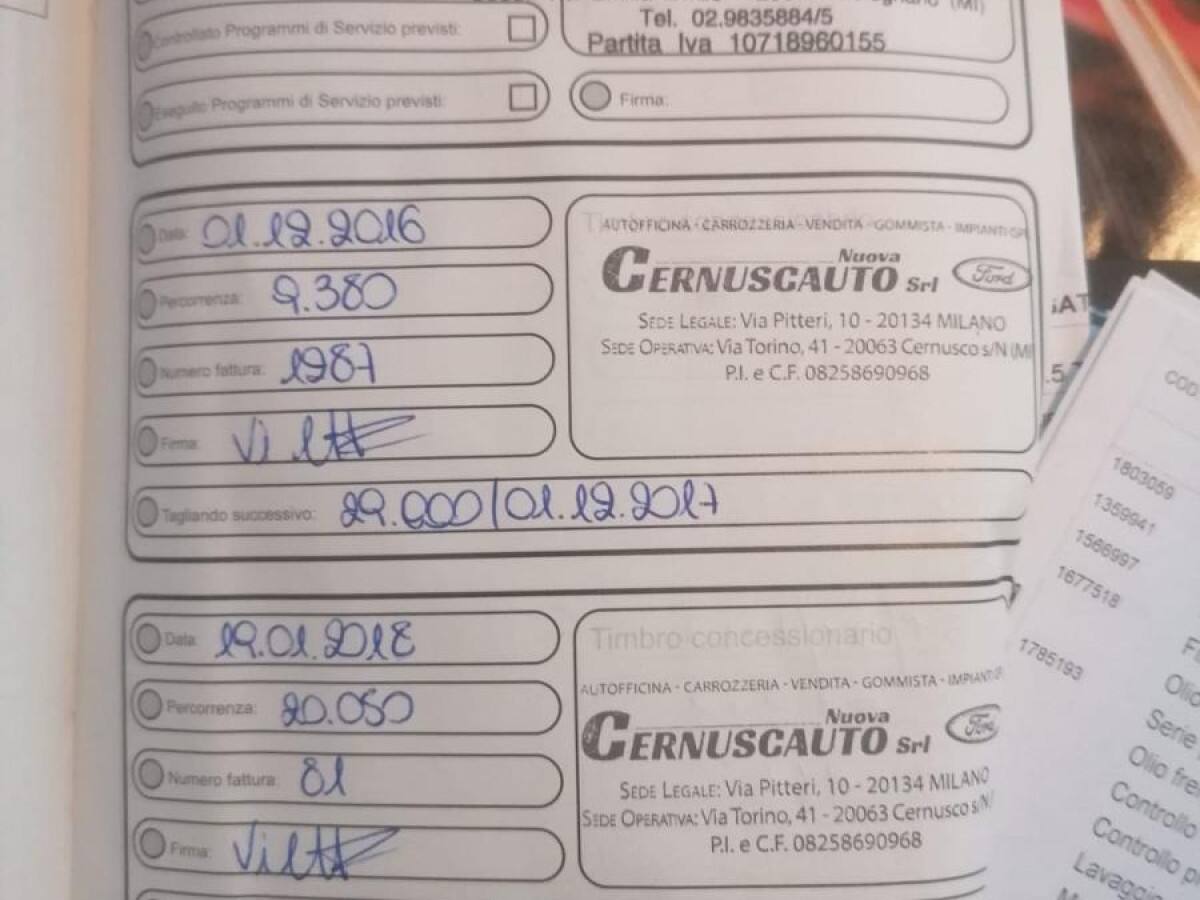 (MI)
Controllato Programmi di Servizio previsti:
Tel. 02.9835884/5
Partita Iva 10718960155
Eseguito Programmi di Servizio previsti:
Firma:
Data: 01.12.2016
Percorrenza: 9.380
Numero fattura: 1987
Firma:
Tagliando successivo: 29.000/01.12.2017
AUTOFFICINA - CARROZZERIA - VENDITA - GOMMISTA - IMPIANTI GP
Nuova
CERNUSCAUTO Srl Ford
SEDE LEGALE: Via Pitteri, 10 - 20134 MILANO
SEDE OPERATIVA: Via Torino, 41 - 20063 Cernusco s/N (MI
P.I. e C.F. 08258690968
Data: 19.01.2018
Percorrenza: 20.050
Numero fattura: 81
Firma:
Timbro concessionario
AUTOFFICINA - CARROZZERIA - VENDITA - GOMMISTA - IMPIANTI
Nuova
CERNUSCAUTO Srl Ford
SEDE LEGALE: Via Pitteri, 10 - 20134 MILANO
SEDE OPERATIVA: Via Torino, 41 - 20063 Cernusco s/N
P.I. e C.F. 08258690968
COD
1803059
1359941
1566997
1677518
1785193
Olio
Serie
Olio fre
Controllo
Controllo p
Lavaggi